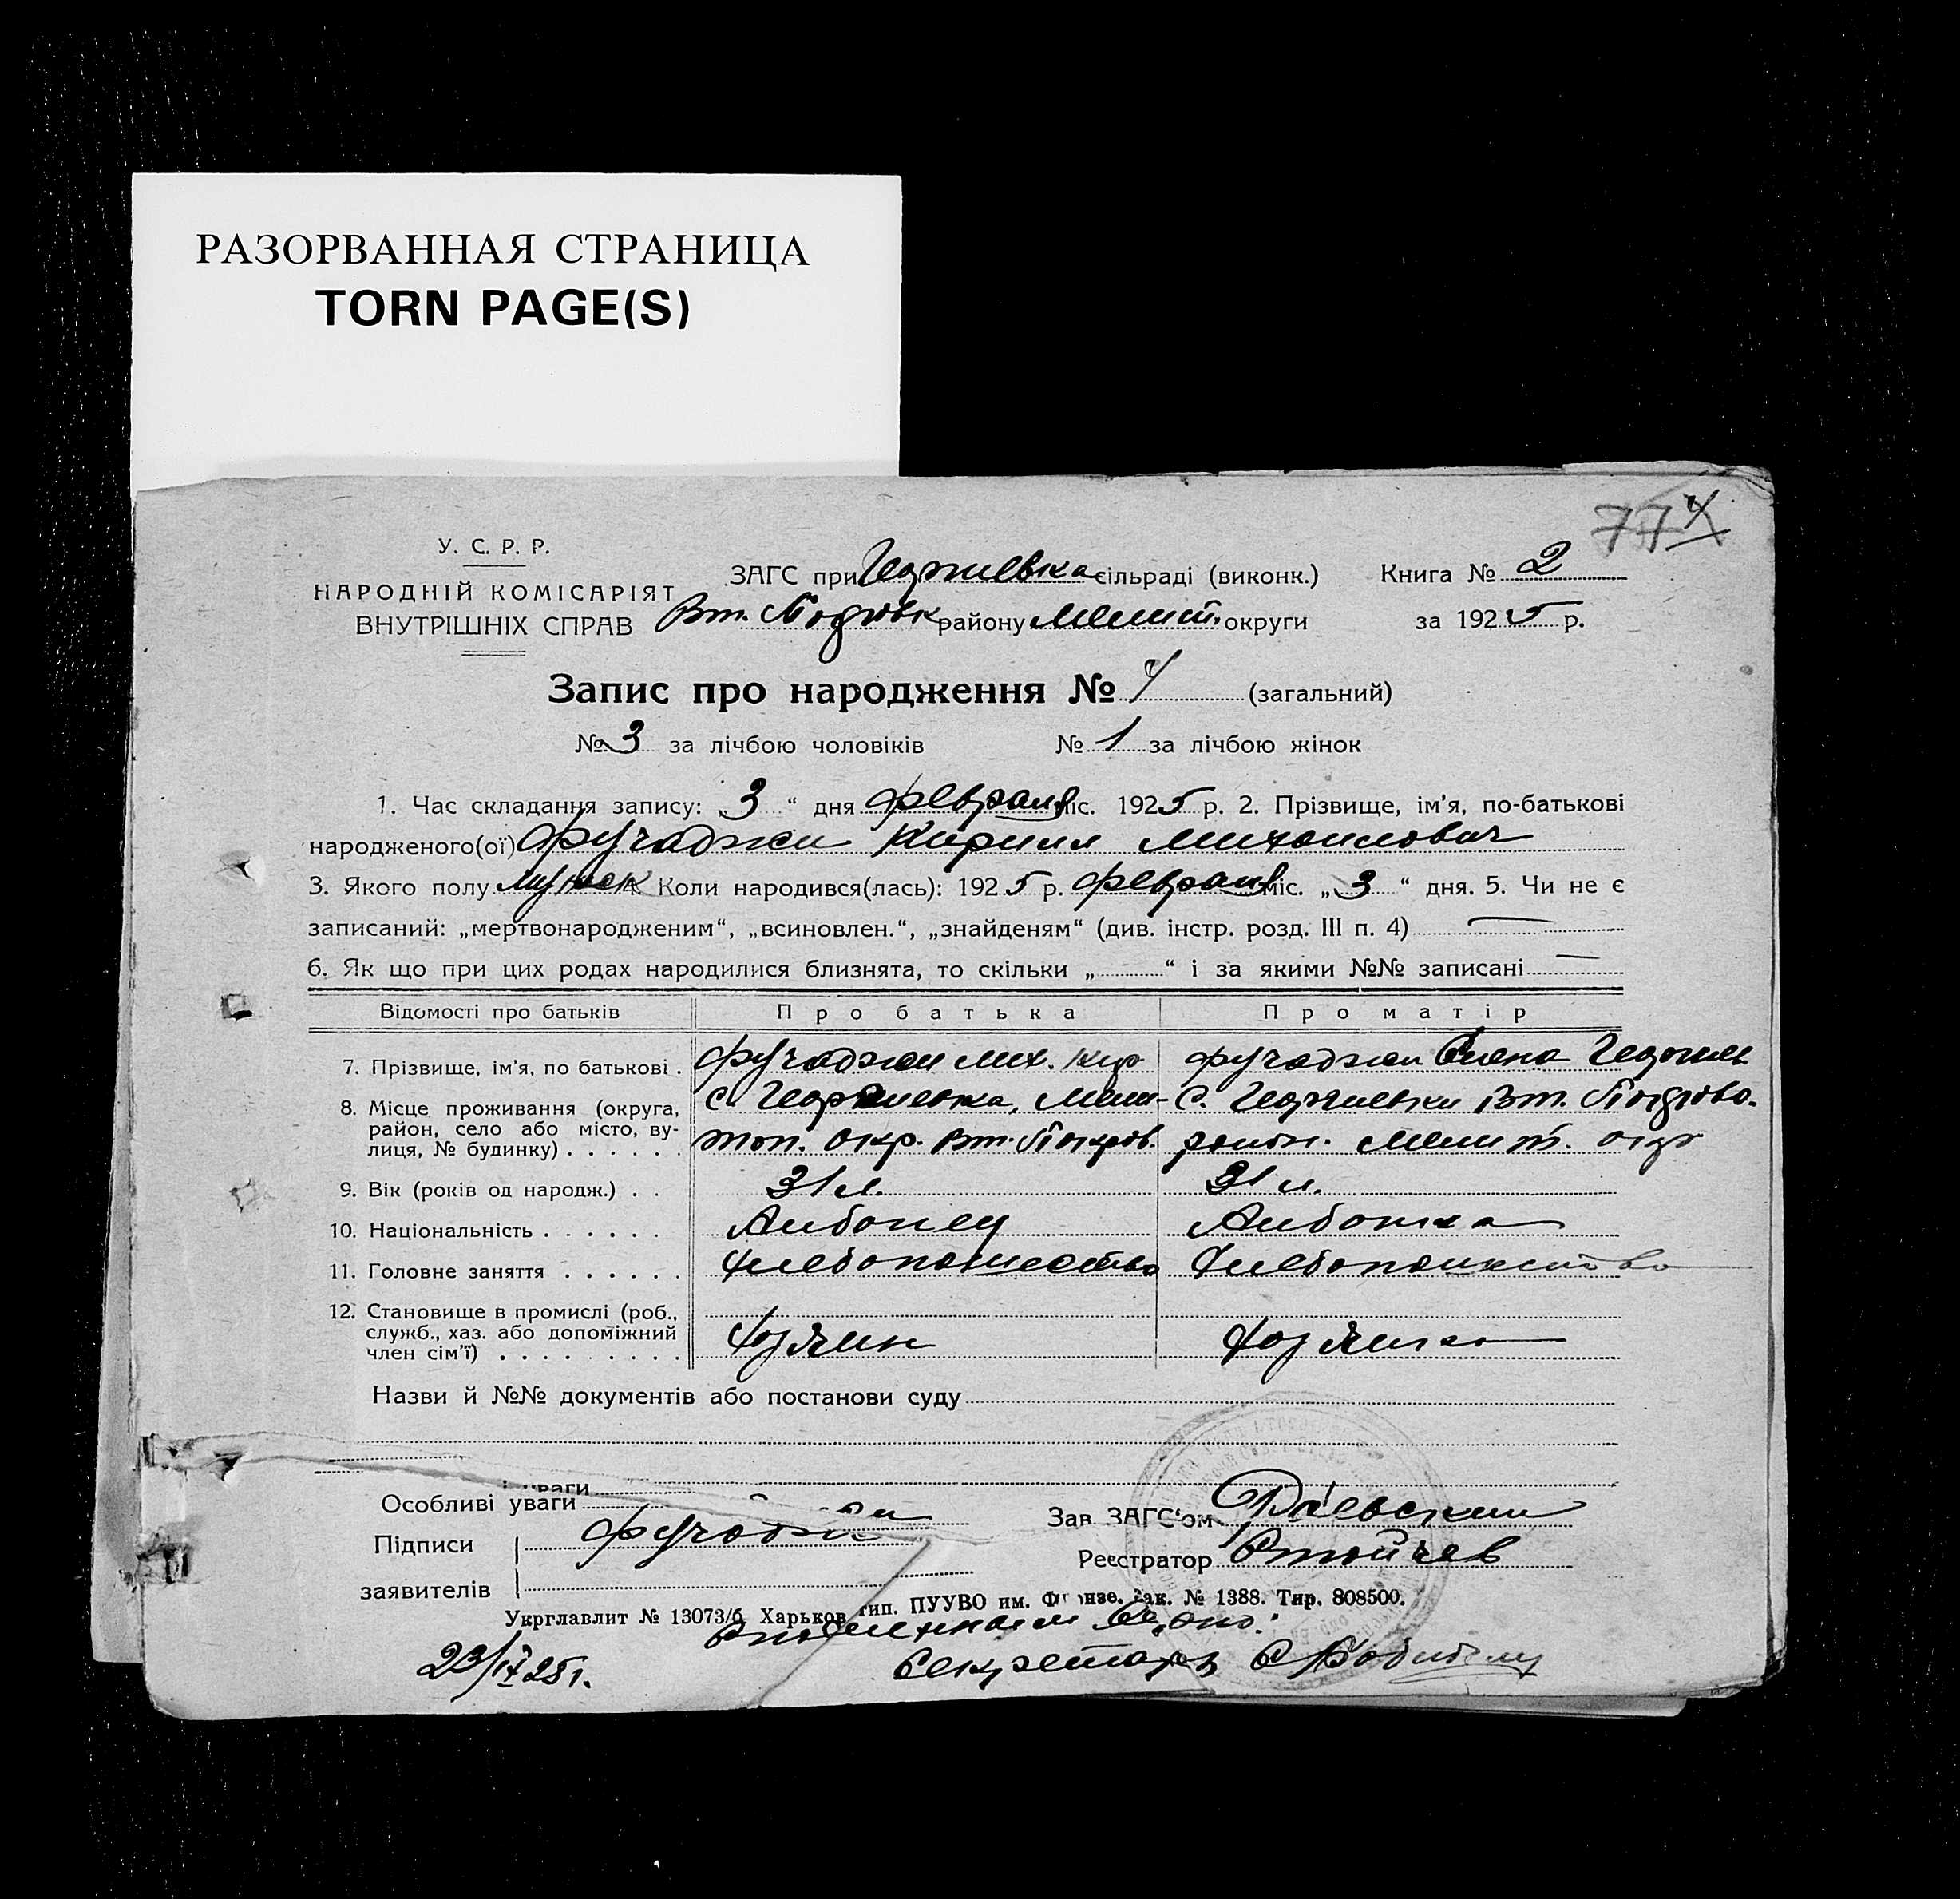 РАЗОРВАННАЯ СТРАНИЦА
TORN PAGE(S)
77 4
У. С. Р. Р.
НАРОДНІЙ КОМІСАРІЯТ
ВНУТРІШНІХ СПРАВ
ЗАГС при Георгиевка сільраді (виконк.) Книга № 2
Вт. Покровк району Мелит. округи за 1925 р.
Запис про народження № 4 (загальний)
№ 3 за лічбою чоловіків № 1 за лічбою жінок
1. Час складання запису: „3“ дня февраля міс. 1925 р. 2. Прізвище, ім'я, по-батькові
народженого(ої) Фучаджи Кирилл Михаилович
3. Якого полу мужск 4. Коли народився(лась): 1925 р. февраля міс. „3“ дня. 5. Чи не є
записаний: „мертвонародженим“, „всиновлен.“, „знайденям“ (див. інстр. розд. III п. 4) —
6. Як що при цих родах народилися близнята, то скільки „ “ і за якими №№ записані —
Відомості про батьків Про батька Про матір
7. Прізвище, ім'я, по батькові . Фучаджи Мих. Кир Фучаджи Елена Георгиев.
8. Місце проживання (округа, район, село або місто, вулиця, № будинку) . . . . . . С. Георгиевка, Мели- С. Георгиевки Вт. Покрово.
топ. окр. Вт. Покров. район. Мелит. окр
9. Вік (років од народж.) . . 31 л. 31 л.
10. Національність . . . . . . Албонец Албонка
11. Головне заняття . . . . . . Хлебопашество Хлебопашество
12. Становище в промислі (роб., служб., хаз. або допоміжний член сім'ї) . . . . . . . . . Хозяин Хозяйка
Назви й №№ документів або постанови суду
уваги
Особливі уваги
Підписи Фучаджи Зав ЗАГС'ом Раевский
заявителів Реєстратор Стойчев
Укрглавлит № 13073/б Харьков тип. ПУУВО им. Фрунзе. Зак. № 1388. Тир. 808500.
23/IX 25г. Секретарь